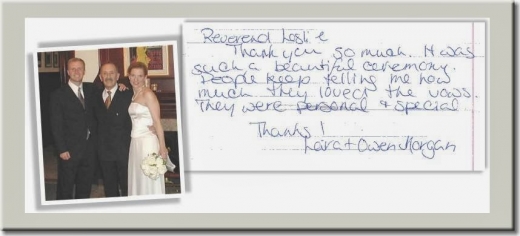 Reverend Leslie
Thank you so much. It was
such a beautiful ceremony.
People keep telling me how
much they loved the vows.
They were personal & special
Thanks!
Lara + Owen Morgan